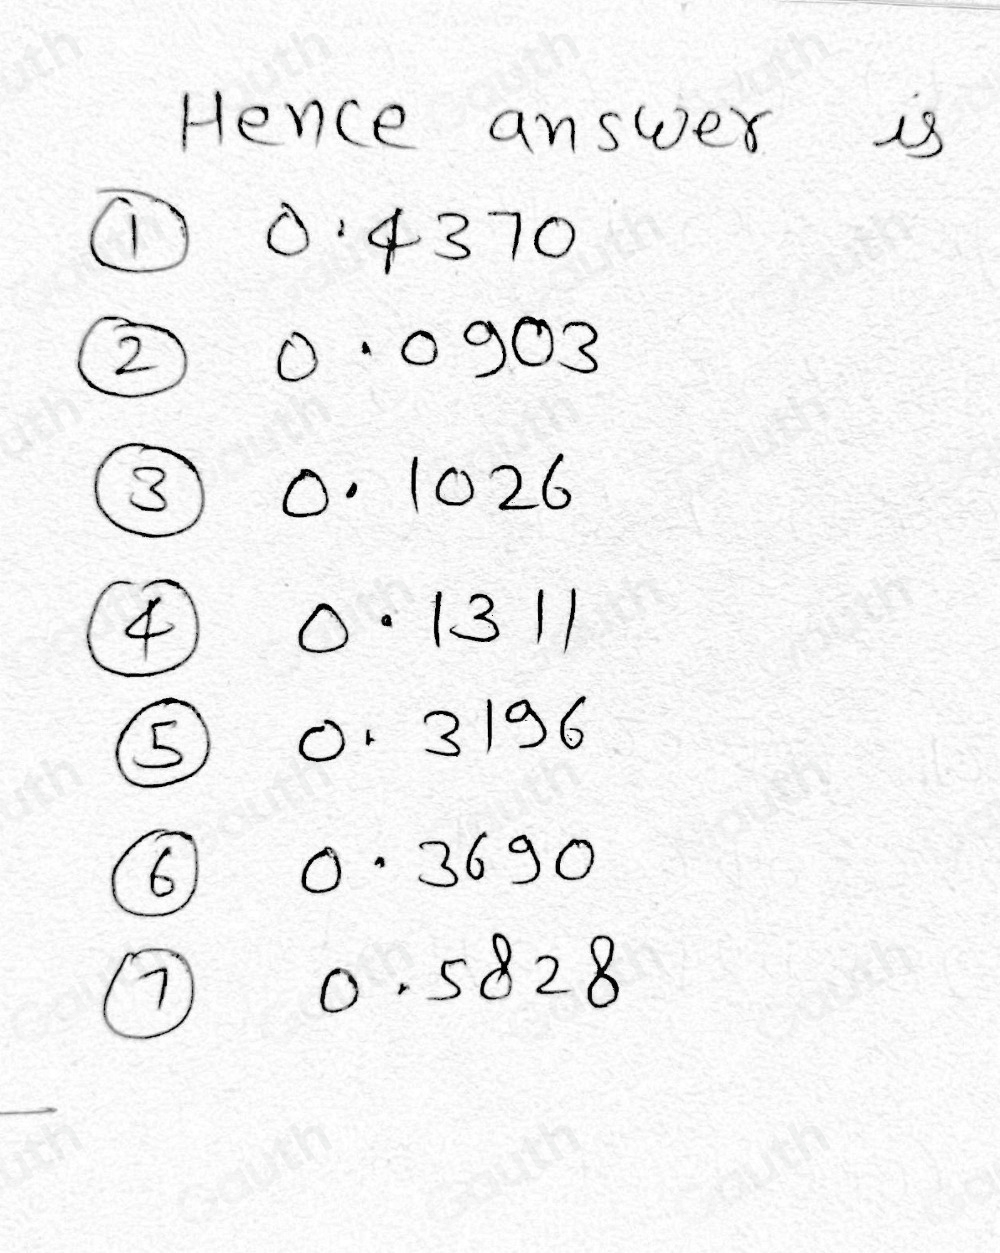 Hence answer is
① 0.4370
② 0.0903
③ 0.1026
④ 0.1311
⑤ 0.3196
⑥ 0.3690
⑦ 0.5828